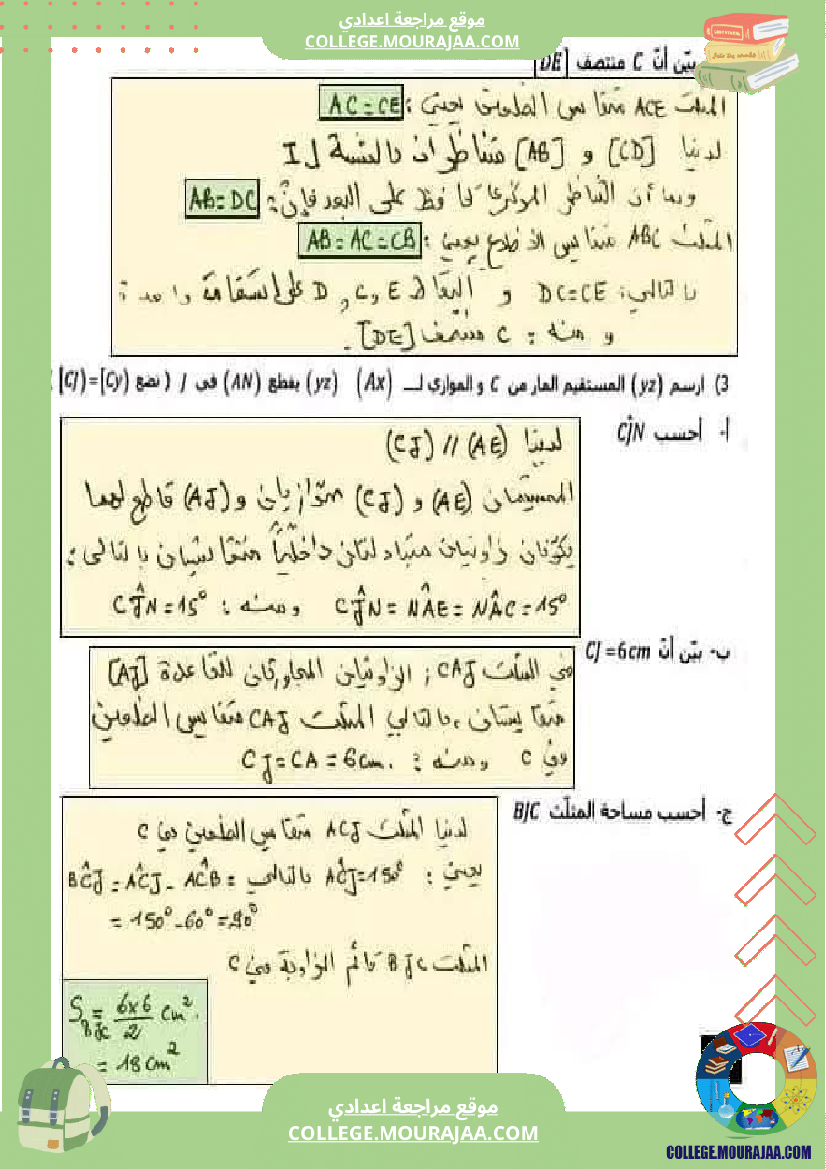 موقع مراجعة اعدادي
COLLEGE.MOURAJAA.COM
بيّن أنّ C منتصف [DE]
المثلث ACE متقايس الضلعين يعني : AC = CE
لدينا [CD] و [AB] متناظران بالنسبة لـ I
وبما أن التناظر المركزي يحافظ على البعد فإنّ : AB = DC
المثلث ABC متقايس الأضلاع يعني : AB = AC = CB
بالتالي : DC = CE و النقاط D , C , E على استقامة واحدة :
و منه : C منتصف [DE].
3) ارسم (yz) المستقيم المار من C و الموازي لـ (Ax) (yz) يقطع (AN) في J ( نضع [CJ)=[Cy) )
أ- أحسب CĴN
لدينا (AE) // (CJ)
المستقيمان (AE) و (CJ) متوازيان و (AJ) قاطع لهما
يكوّنان زاويتان متبادلتان داخليّا متقايستان بالتالي :
CĴN = NÂE = NÂC = 15° ومنه : CĴN = 15°
ب- بيّن أنّ CJ = 6cm
في المثلث CAJ ; الزاويتان المجاورتان للقاعدة [AJ]
متقايستان ، بالتالي المثلث CAJ متقايس الضلعين
في C ومنه : CJ = CA = 6cm.
ج- أحسب مساحة المثلّث BJC
لدينا المثلث ACJ متقايس الضلعين في C
يعني : AĈJ = 150° بالتالي BĈJ = AĈJ - AĈB =
= 150° - 60° = 90°
المثلث BJC قائم الزاوية في C
S BJC = 6x6/2 cm².
= 18cm²
موقع مراجعة اعدادي
COLLEGE.MOURAJAA.COM
COLLEGE.MOURAJAA.COM